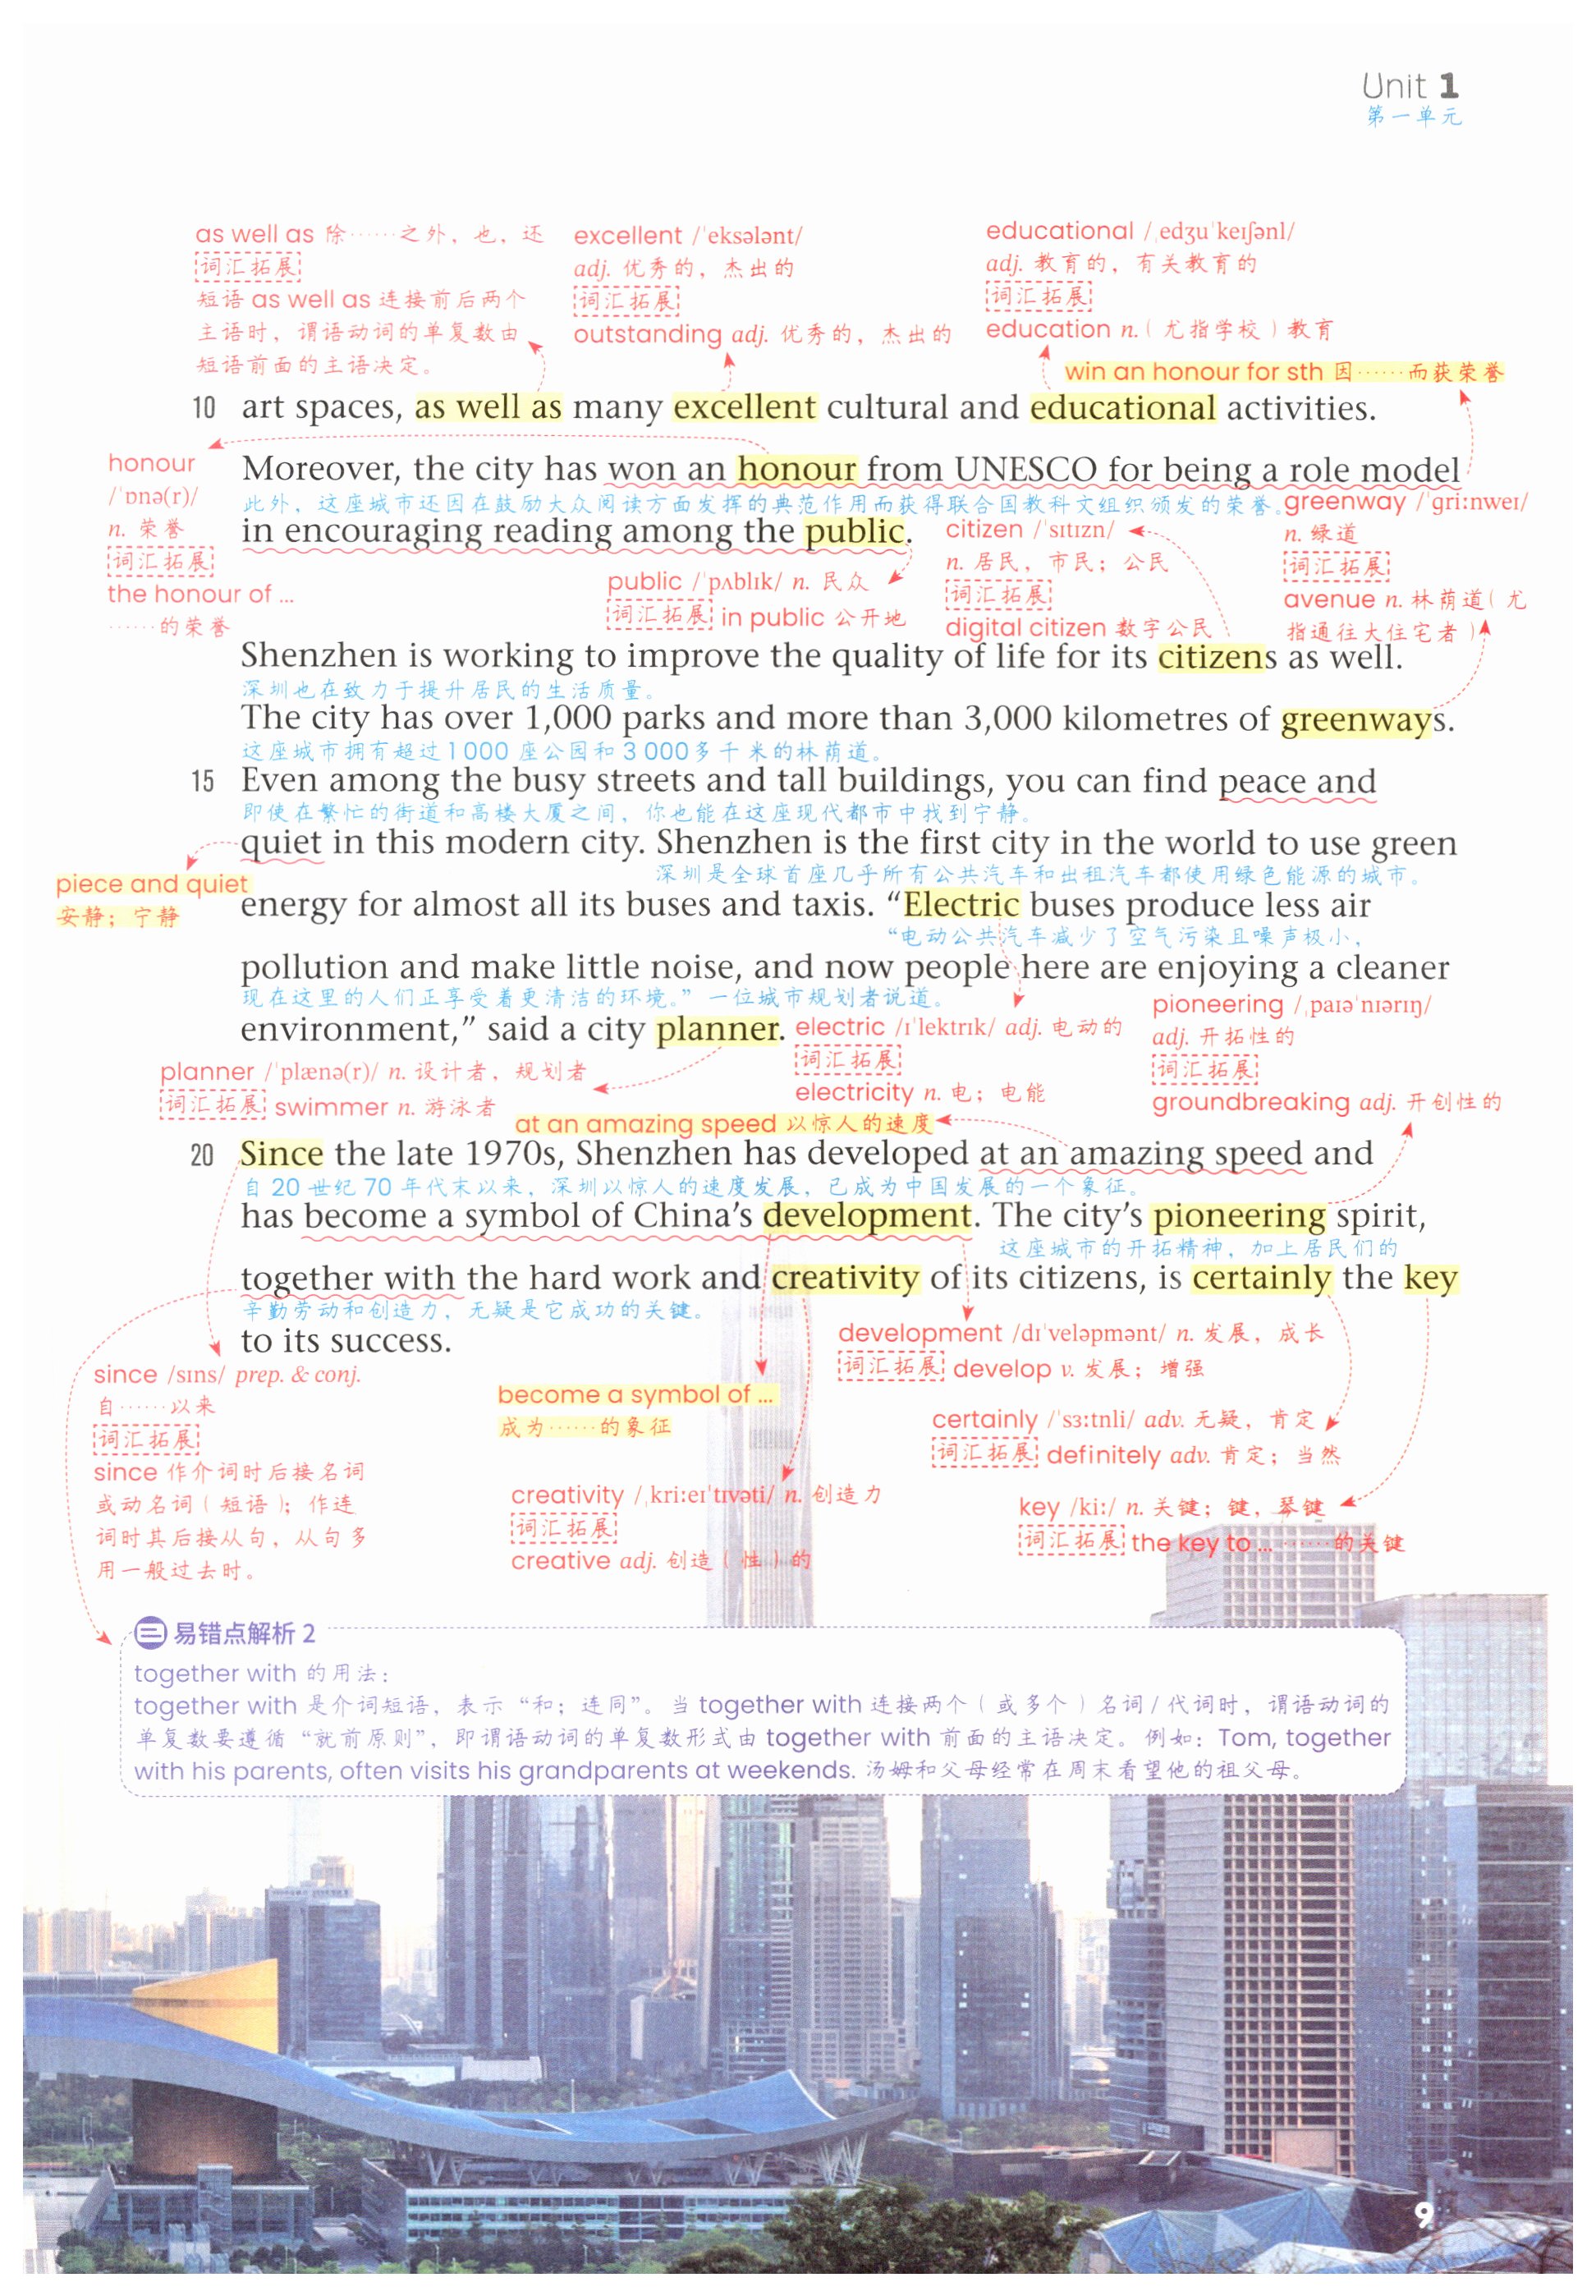 Unit 1
第一单元
as well as 除……之外，也，还
词汇拓展
短语 as well as 连接前后两个
主语时，谓语动词的单复数由
短语前面的主语决定。
excellent /ˈeksələnt/
adj. 优秀的，杰出的
词汇拓展
outstanding adj. 优秀的，杰出的
educational /ˌedʒuˈkeɪʃənl/
adj. 教育的，有关教育的
词汇拓展
education n.（尤指学校）教育
win an honour for sth 因……而获荣誉
10 art spaces, as well as many excellent cultural and educational activities.
honour
/ˈɒnə(r)/
n. 荣誉
词汇拓展
the honour of ...
……的荣誉
Moreover, the city has won an honour from UNESCO for being a role model
此外，这座城市还因在鼓励大众阅读方面发挥的典范作用而获得联合国教科文组织颁发的荣誉。
in encouraging reading among the public.
public /ˈpʌblɪk/ n. 民众
词汇拓展 in public 公开地
citizen /ˈsɪtɪzn/
n. 居民，市民；公民
词汇拓展
digital citizen 数字公民
greenway /ˈɡriːnweɪ/
n. 绿道
词汇拓展
avenue n. 林荫道（尤
指通往大住宅者）
Shenzhen is working to improve the quality of life for its citizens as well.
深圳也在致力于提升居民的生活质量。
The city has over 1,000 parks and more than 3,000 kilometres of greenways.
这座城市拥有超过1 000 座公园和 3 000多千米的林荫道。
15 Even among the busy streets and tall buildings, you can find peace and
即使在繁忙的街道和高楼大厦之间，你也能在这座现代都市中找到宁静。
quiet in this modern city. Shenzhen is the first city in the world to use green
深圳是全球首座几乎所有公共汽车和出租汽车都使用绿色能源的城市。
piece and quiet
安静；宁静
energy for almost all its buses and taxis. “Electric buses produce less air
“电动公共汽车减少了空气污染且噪声极小，
pollution and make little noise, and now people here are enjoying a cleaner
现在这里的人们正享受着更清洁的环境。”一位城市规划者说道。
environment,” said a city planner.
electric /ɪˈlektrɪk/ adj. 电动的
词汇拓展
electricity n. 电；电能
pioneering /ˌpaɪəˈnɪərɪŋ/
adj. 开拓性的
词汇拓展
groundbreaking adj. 开创性的
planner /ˈplænə(r)/ n. 设计者，规划者
词汇拓展 swimmer n. 游泳者
at an amazing speed 以惊人的速度
20 Since the late 1970s, Shenzhen has developed at an amazing speed and
自 20 世纪 70 年代末以来，深圳以惊人的速度发展，已成为中国发展的一个象征。
has become a symbol of China’s development. The city’s pioneering spirit,
这座城市的开拓精神，加上居民们的
together with the hard work and creativity of its citizens, is certainly the key
辛勤劳动和创造力，无疑是它成功的关键。
to its success.
since /sɪns/ prep. & conj.
自……以来
词汇拓展
since 作介词时后接名词
或动名词（短语）；作连
词时其后接从句，从句多
用一般过去时。
become a symbol of ...
成为……的象征
creativity /ˌkriːeɪˈtɪvəti/ n. 创造力
词汇拓展
creative adj. 创造（性）的
development /dɪˈveləpmənt/ n. 发展，成长
词汇拓展 develop v. 发展；增强
certainly /ˈsɜːtnli/ adv. 无疑，肯定
词汇拓展 definitely adv. 肯定；当然
key /kiː/ n. 关键；键，琴键
词汇拓展 the key to ... ……的关键
易错点解析 2
together with 的用法：
together with 是介词短语，表示“和；连同”。当 together with 连接两个（或多个）名词/代词时，谓语动词的
单复数要遵循“就前原则”，即谓语动词的单复数形式由 together with 前面的主语决定。例如：Tom, together
with his parents, often visits his grandparents at weekends. 汤姆和父母经常在周末看望他的祖父母。
9